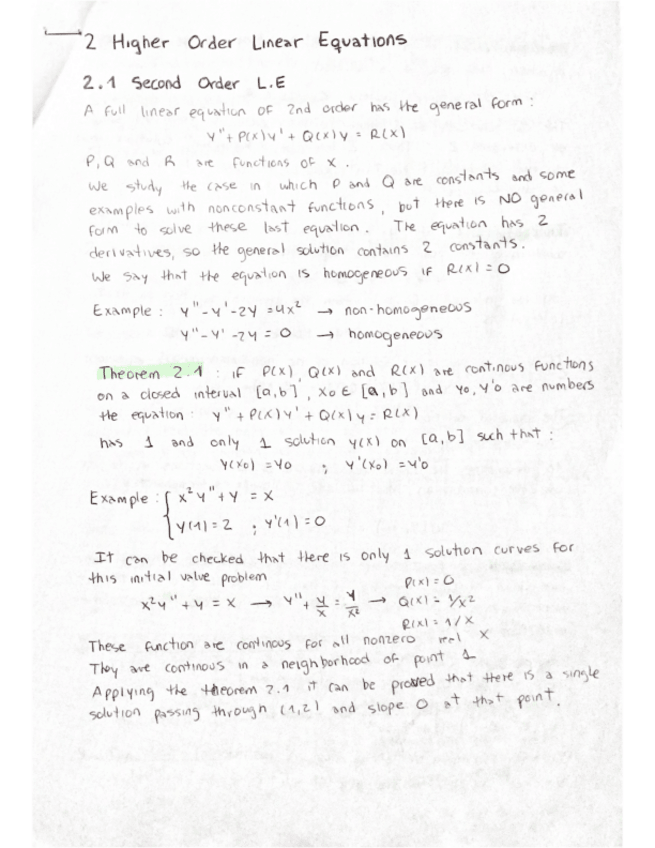 2 Higher Order Linear Equations
2.1 Second Order L.E
A full linear equation of 2nd order has the general form :
y'' + P(x)y' + Q(x)y = R(x)
P, Q and R are functions of x .
We study the case in which P and Q are constants and some
examples with nonconstant functions, but there is NO general
form to solve these last equation. The equation has 2
derivatives, so the general solution contains 2 constants.
We say that the equation is homogeneous if R(x) = 0
Example : y'' - y' - 2y = 4x² → non-homogeneous
y'' - y' - 2y = 0 → homogeneous
Theorem 2.1 : if P(x), Q(x) and R(x) are continous functions
on a closed interval [a,b], x₀ ∈ [a,b] and y₀, y'₀ are numbers
the equation : y'' + P(x)y' + Q(x)y = R(x)
has 1 and only 1 solution y(x) on [a,b] such that :
y(x₀) = y₀ ; y'(x₀) = y'₀
Example : { x²y'' + y = x
y(1) = 2 ; y'(1) = 0
It can be checked that there is only 1 solution curves for
this initial value problem
P(x) = 0
x²y'' + y = x → y'' + y/x = y/x² → Q(x) = 1/x²
R(x) = 1/x
These function are continous for all nonzero real x
They are continous in a neighborhood of point 1
Applying the theorem 2.1 it can be proved that there is a single
solution passing through (1,2) and slope 0 at that point.